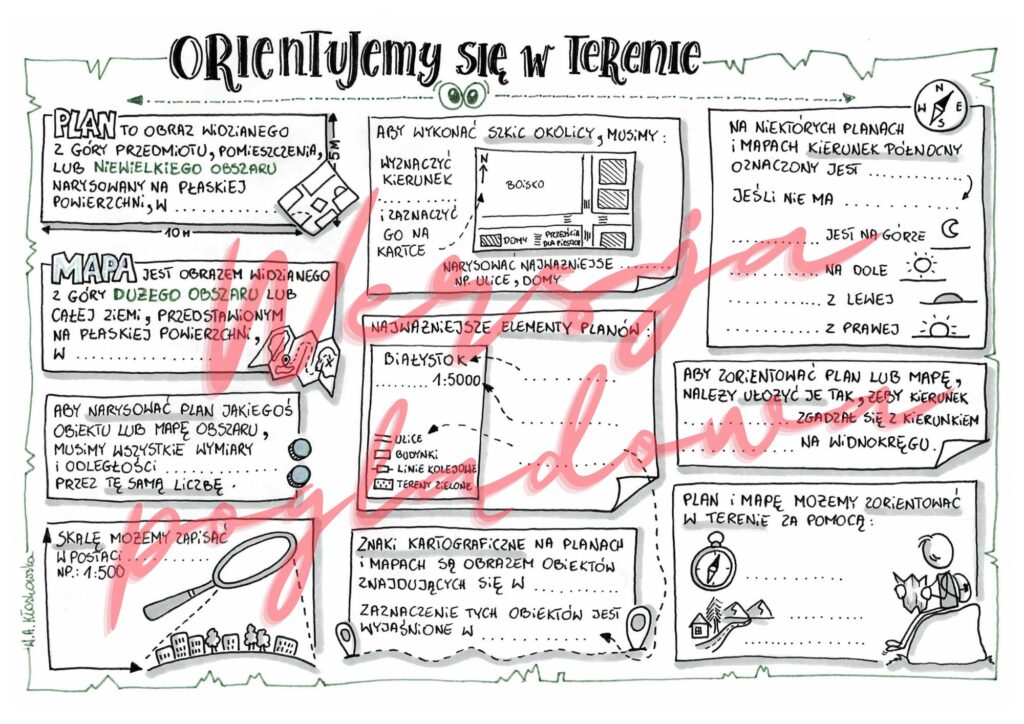 ORIENTUJEMY SIĘ W TERENIE
PLAN TO OBRAZ WIDZIANEGO
Z GÓRY PRZEDMIOTU, POMIESZCZENIA,
LUB NIEWIELKIEGO OBSZARU
NARYSOWANY NA PŁASKIEJ
POWIERZCHNI, W ....................
5M
10 M
MAPA JEST OBRAZEM WIDZIANEGO
Z GÓRY DUŻEGO OBSZARU LUB
CAŁEJ ZIEMI, PRZEDSTAWIONYM
NA PŁASKIEJ POWIERZCHNI,
W ....................
ABY NARYSOWAĆ PLAN JAKIEGOŚ
OBIEKTU LUB MAPĘ OBSZARU,
MUSIMY WSZYSTKIE WYMIARY
I ODLEGŁOŚCI ....................
PRZEZ TĘ SAMĄ LICZBĘ.
SKALĘ MOŻEMY ZAPISAĆ
W POSTACI ....................
NP.: 1:500
W.A. Kłoskowska
ABY WYKONAĆ SZKIC OKOLICY, MUSIMY:
WYZNACZYĆ
KIERUNEK
....................
I ZAZNACZYĆ
GO NA
KARTCE
N
BOISKO
DOMY
PRZEJŚCIA
DLA PIESZYCH
NARYSOWAĆ NAJWAŻNIEJSZE ..........
NP. ULICE, DOMY
NAJWAŻNIEJSZE ELEMENTY PLANÓW:
BIAŁYSTOK
.......... 1:5000
ULICE
BUDYNKI
LINIE KOLEJOWE
TERENY ZIELONE
ZNAKI KARTOGRAFICZNE NA PLANACH
I MAPACH SĄ OBRAZEM OBIEKTÓW
ZNAJDUJĄCYCH SIĘ W ....................
ZAZNACZENIE TYCH OBIEKTÓW JEST
WYJAŚNIONE W ....................
N
W E
S
NA NIEKTÓRYCH PLANACH
I MAPACH KIERUNEK PÓŁNOCNY
OZNACZONY JEST ....................
JEŚLI NIE MA ....................
.................... JEST NA GÓRZE
.................... NA DOLE
.................... Z LEWEJ
.................... Z PRAWEJ
ABY ZORIENTOWAĆ PLAN LUB MAPĘ,
NALEŻY UŁOŻYĆ JE TAK, ŻEBY KIERUNEK
.................... ZGADZAŁ SIĘ Z KIERUNKIEM
.................... NA WIDNOKRĘGU.
PLAN I MAPĘ MOŻEMY ZORIENTOWAĆ
W TERENIE ZA POMOCĄ:
Wersja
poglądowa